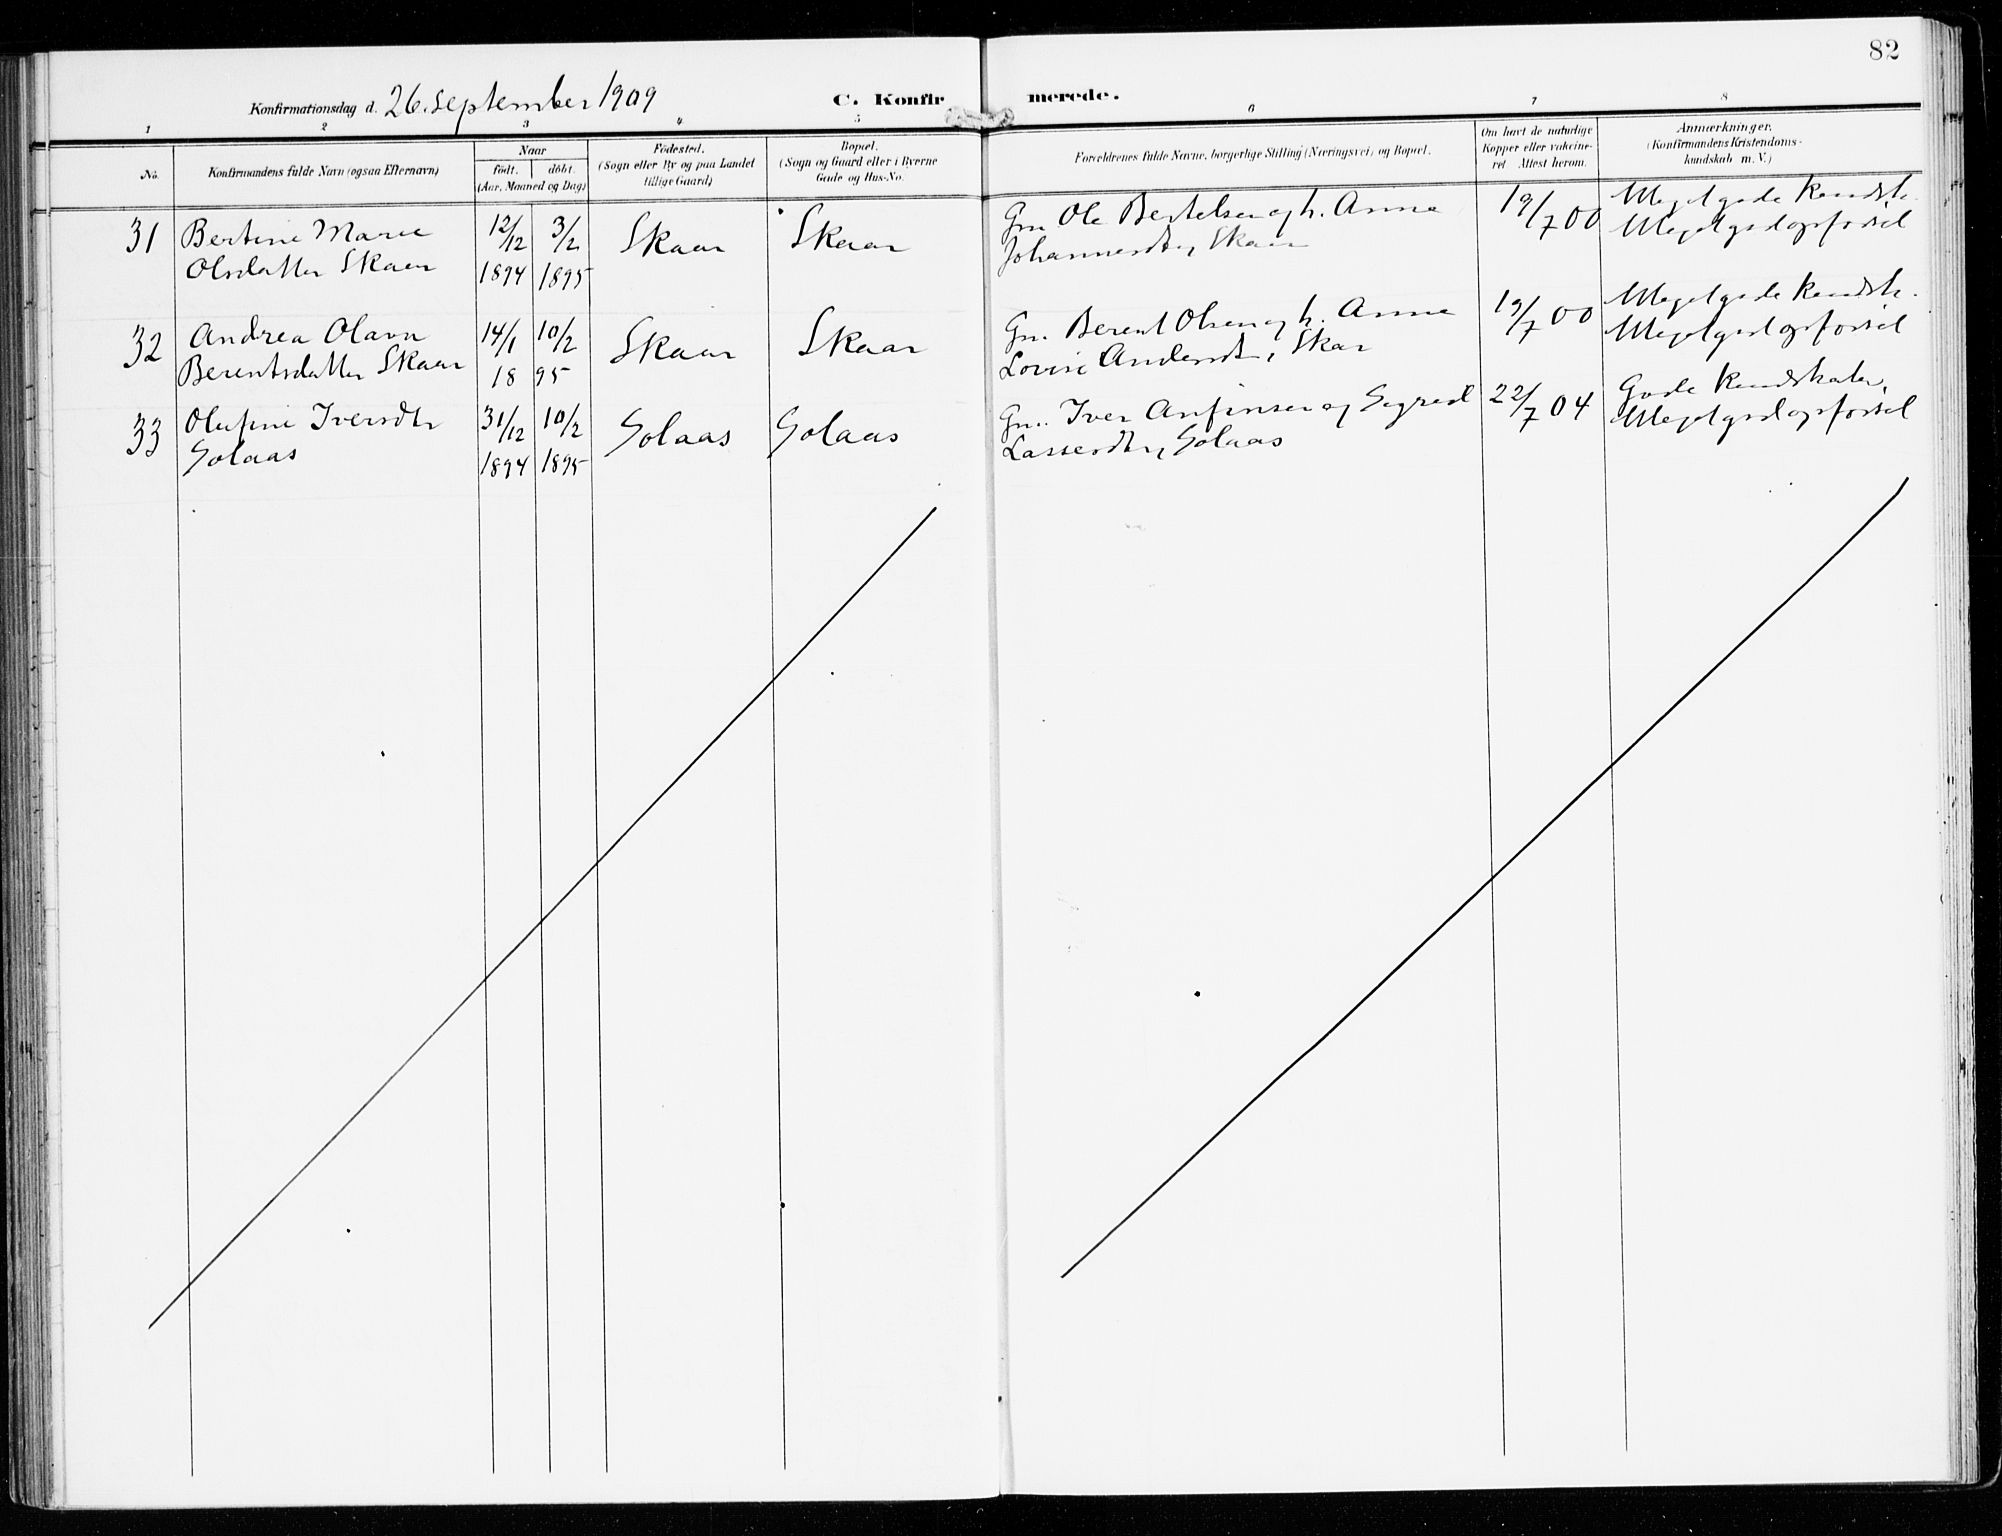 82
Konfirmationsdag d. 26. September 1909
C. Konfirmerede.
1 2 3 4 5 6 7 8
No.
Konfirmandens fulde Navn (ogsaa Efternavn)
Naar
födt. döbt.
(Aar, Maaned og Dag)
Födested.
(Sogn eller By og paa Landet
tillige Gaard)
Bopæl.
(Sogn og Gaard eller i Byerne
Gade og Hus-No.
Forældrenes fulde Navne, borgerlige Stilling (Næringsvei) og Bopæl.
Om havt de naturlige
Kopper eller vakcine-
ret Attest herom.
Anmærkninger.
(Konfirmandens Kristendoms-
kundskab m.V.)
31 Bertine Marie 12/12 3/2 Skaar Skaar Gm Ole Bertelsen og h. Anna 19/7 00 Meget gode Kundsk.
Olsdatter Skaar 1894 1895 Johannesdtr, Skaar Meget god opførsel
32 Andrea Olava 14/1 10/2 Skaar Skaar Gm. Berent Olsen og h. Anna 19/7 00 Meget gode Kundsk.
Berentsdatter Skaar 18 95 Lovise Andersdtr, Skar Meget god opførsel
33 Olufine Iversdtr 31/12 10/2 Solaas Solaas Gm.. Iver Anfinsen og Sigrid 22/7 04 Gode Kundskaber,
Solaas 1894 1895 Lassesdtr, Solaas Meget god opførsel